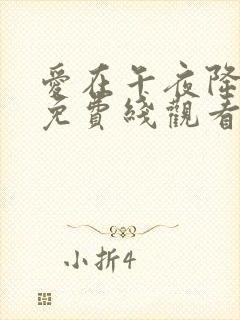 愛在午夜降
免費綫觀看
小折4